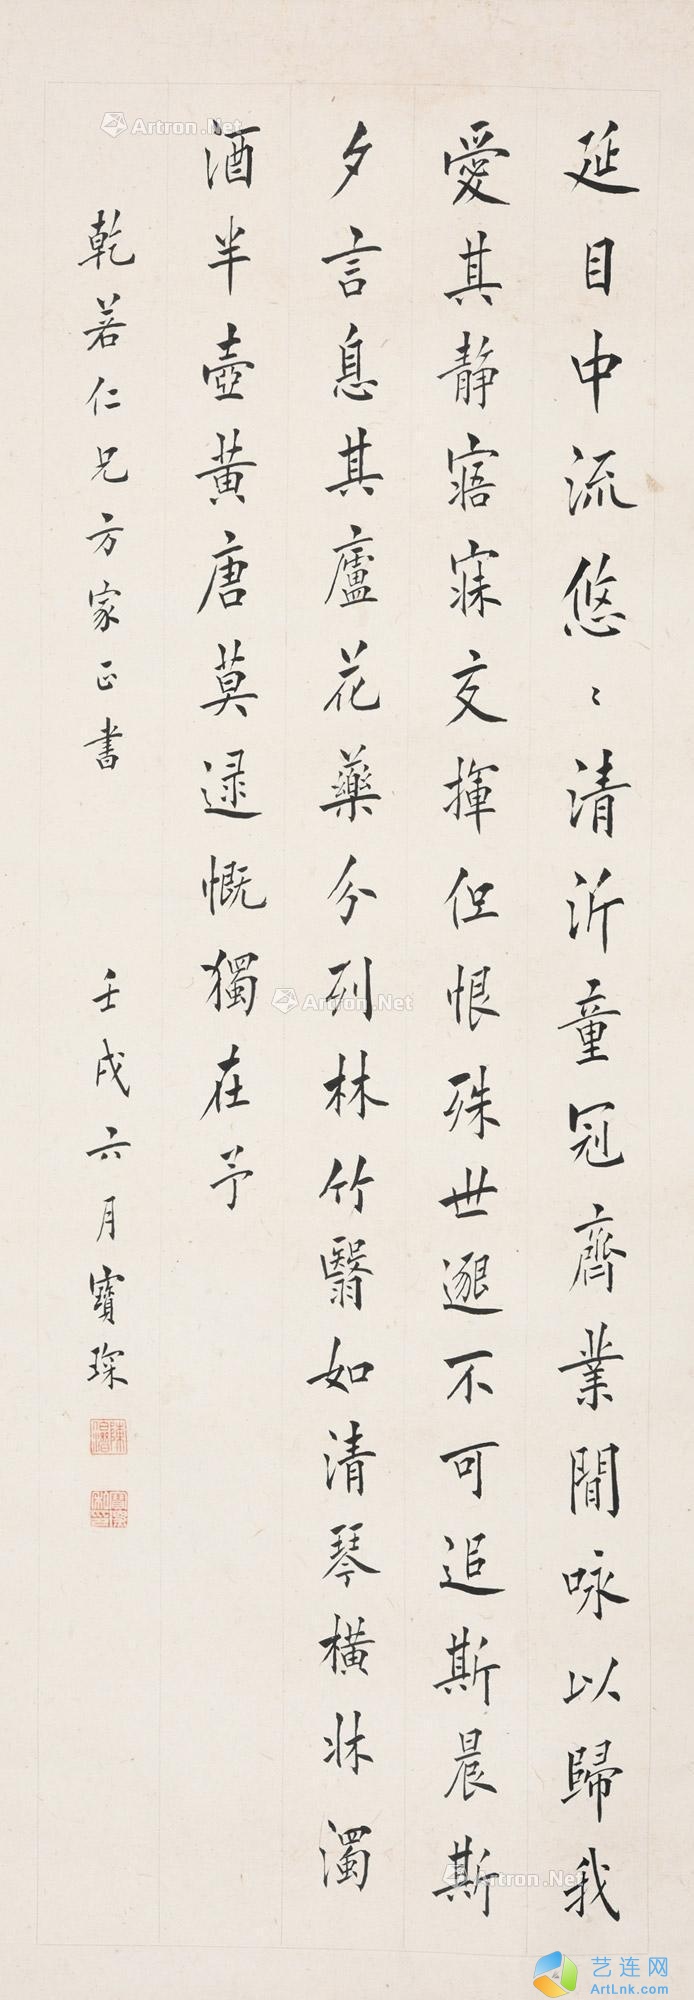 延目中流悠〻清沂童冠齊業閒咏以歸我
愛其靜寤寐交揮但恨殊世邈不可追斯晨斯
夕言息其廬花藥分列林竹翳如清琴橫牀濁
酒半壺黃唐莫逮慨獨在予
乾若仁兄方家正書
壬戌六月寶琛
Artron.Net
Artron.Net
Artron.Net
艺连网
ArtLnk.com